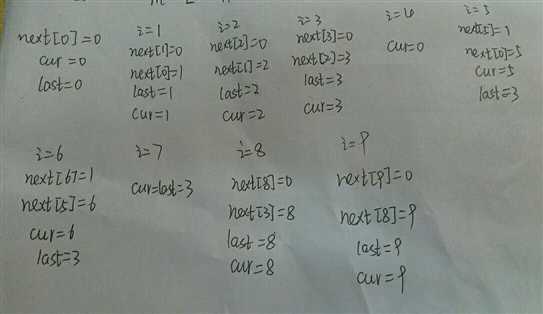 next[0]=0
cur=0
last=0
i=1
next[1]=0
next[0]=1
last=1
cur=1
i=2
next[2]=0
next[1]=2
last=2
cur=2
i=3
next[3]=0
next[2]=3
last=3
cur=3
cur=0
i=5
next[5]=1
next[0]=5
cur=5
last=3
i=6
next[6]=1
next[5]=6
cur=6
last=3
i=7
cur=last=3
i=8
next[8]=0
next[3]=8
last=8
cur=8
i=9
next[9]=0
next[8]=9
last=9
cur=9